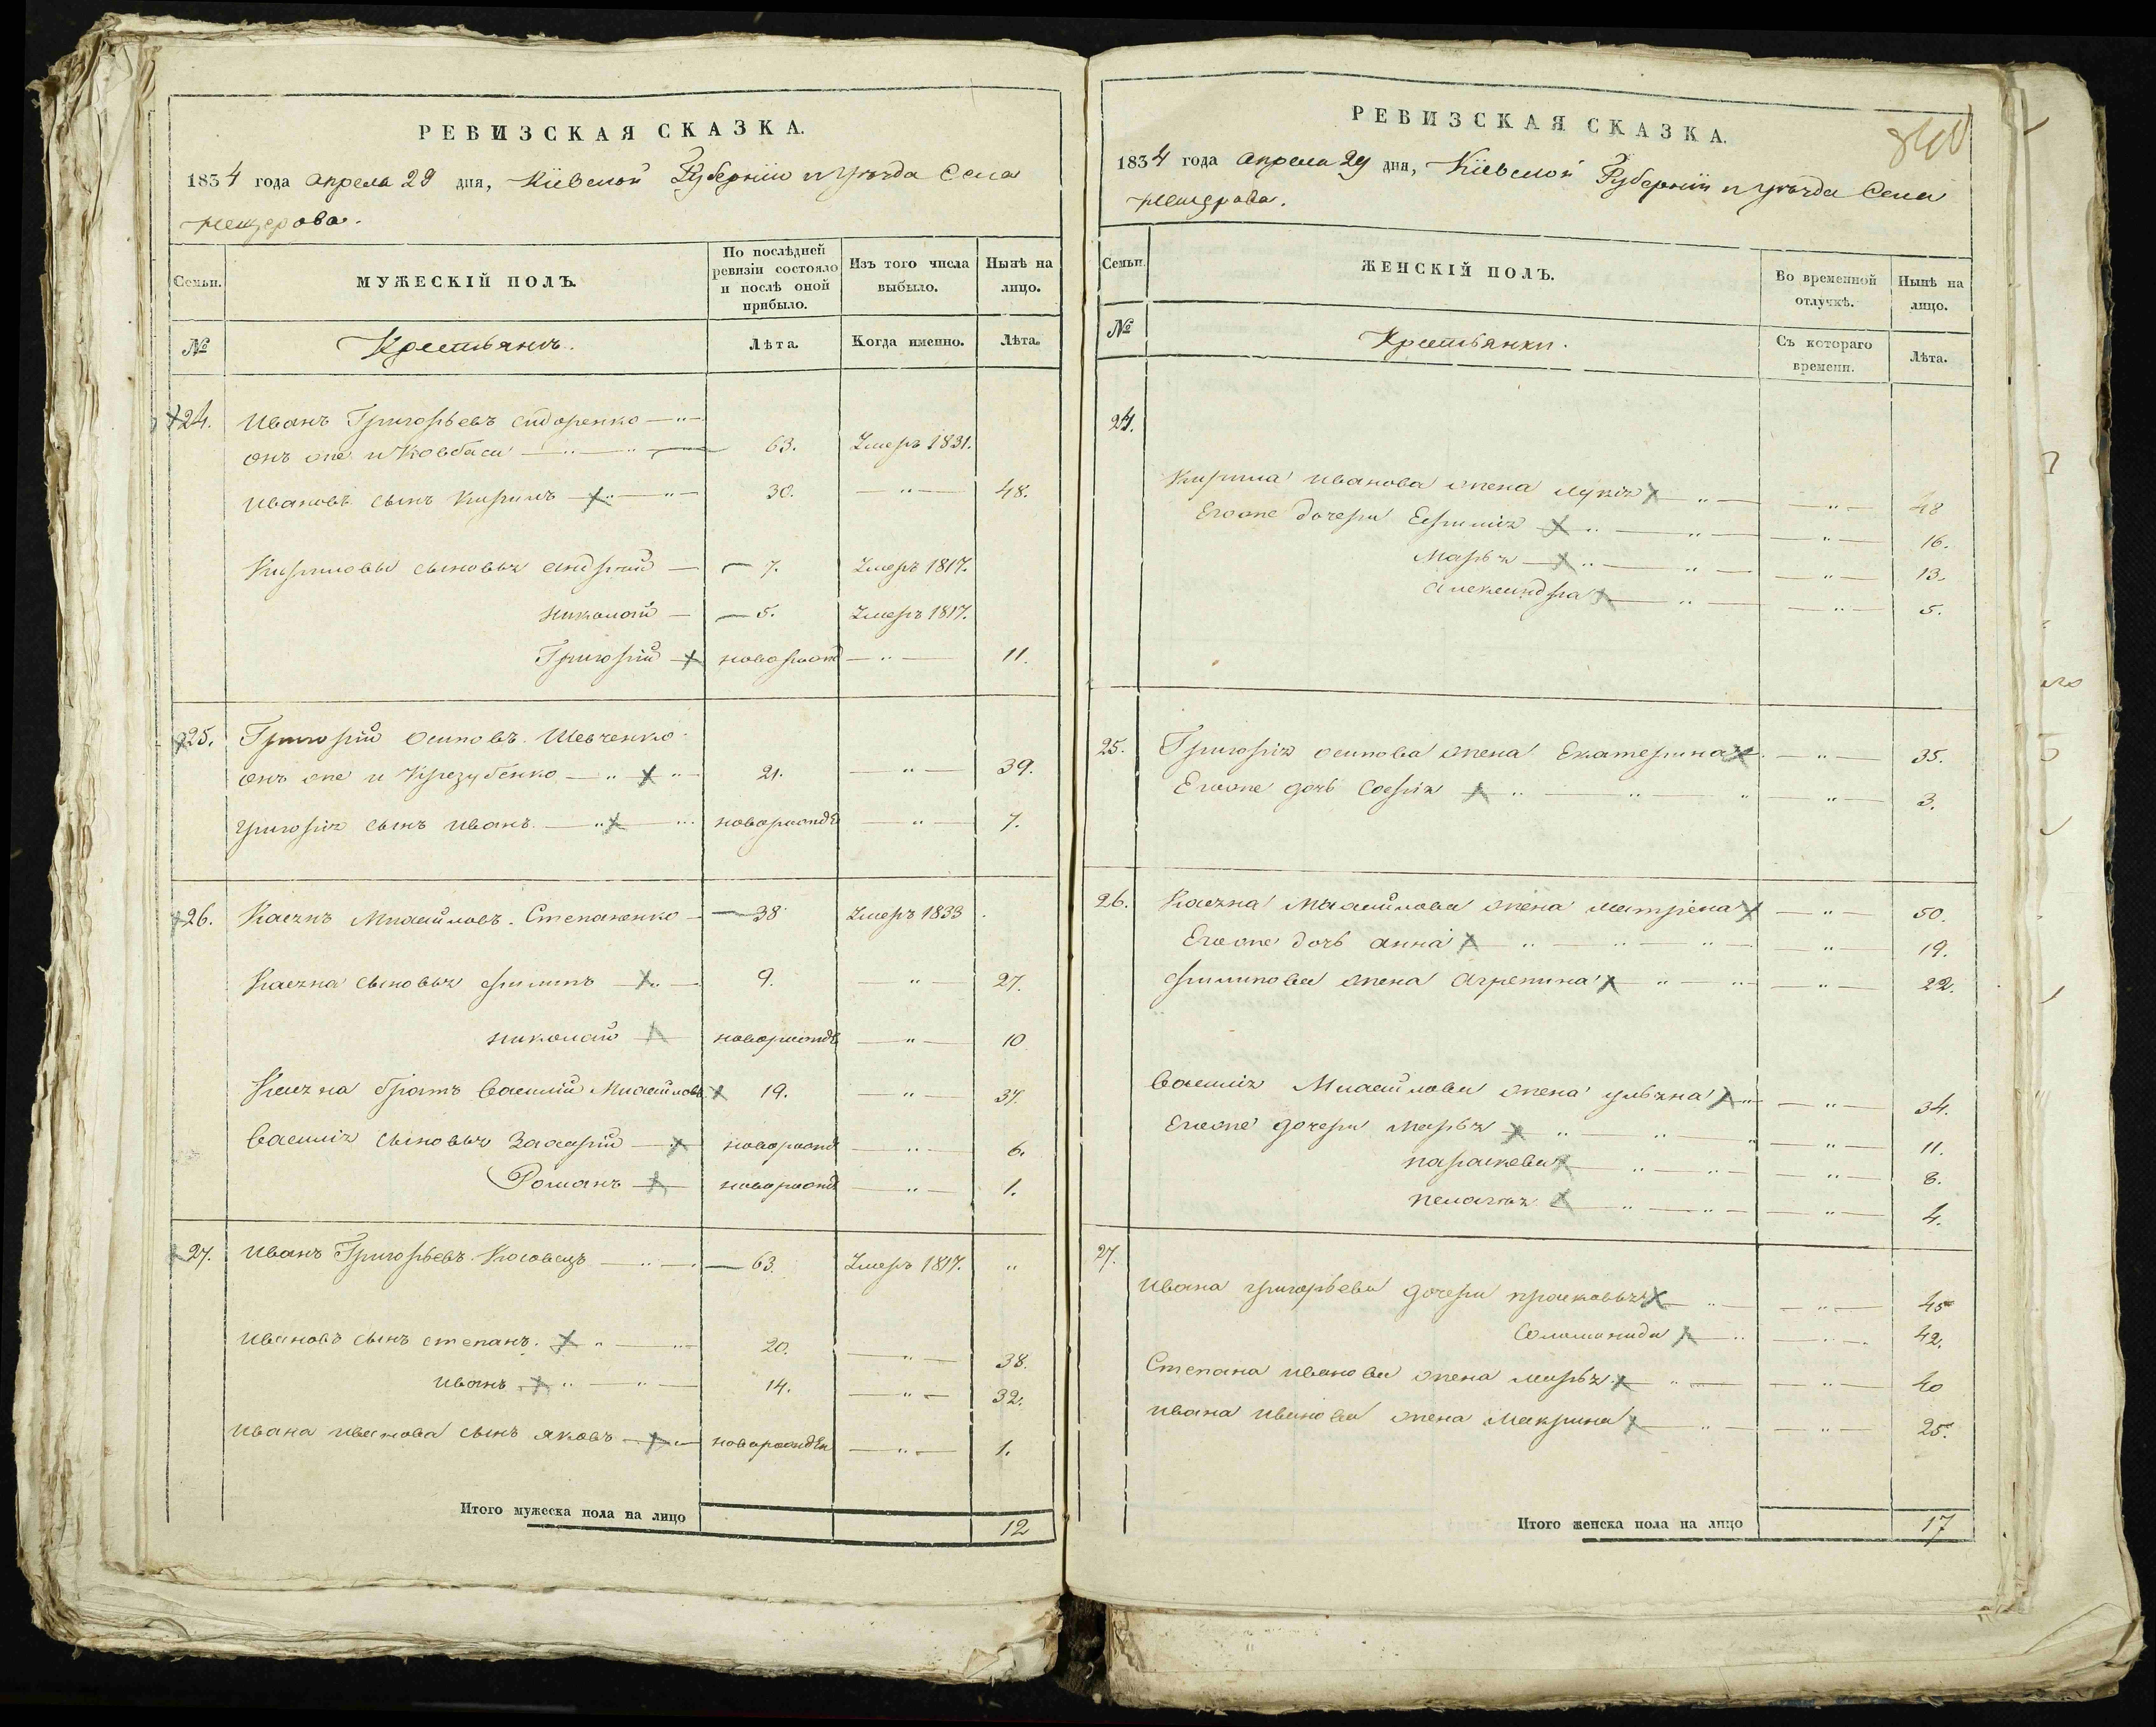 РЕВИЗСКАЯ СКАЗКА.
1834 года апреля 29 дня, Кіевской Губерніи и уѣзда Села
Мещерова.
Семьи. МУЖЕСКІЙ ПОЛЪ. По послѣдней ревизіи состояло и послѣ оной прибыло. Изъ того числа выбыло. Нынѣ на лицо.
№ Крестьянъ. Лѣта. Когда именно. Лѣта.
24. Иванъ Григорьевъ Сидоренко
онъ же и Ковбаса 63. Умеръ 1831.
Ивановъ сынъ Кирилъ 30. 48.
Кириловы сыновья Андрей 7. Умеръ 1817.
Николай 5. Умеръ 1817.
Григорій новорожд 11.
25. Григорій Осиповъ Шевченко
онъ же и Крезубенко 21. 39.
Григорія сынъ Иванъ новорожде 7.
26. Касянъ Михайловъ Степаненко 38 Умеръ 1833
Касяна сыновья Филипъ 9. 27.
Николай новорожде 10
Касяна братъ Василій Михайловъ 19. 37.
Василія сыновья Захарій новорожд 6.
Романъ новорожд 1.
27. Иванъ Григорьевъ Косовецъ 63. Умеръ 1817. "
Ивановъ сынъ Степанъ. 20. 38.
Иванъ 14. 32.
Ивана Иванова сынъ Яковъ новорожден 1.
Итого мужеска пола на лицо 12
РЕВИЗСКАЯ СКАЗКА.
1834 года апреля 29 дня, Кіевской Губерніи и уѣзда Села
Мещерова.
Семьи. ЖЕНСКІЙ ПОЛЪ. Во временной отлучкѣ. Нынѣ на лицо.
№ Крестьянки. Съ котораго времени. Лѣта.
24.
Кирила Иванова жена Лукія 48
Егоже дочери Ефимія 16.
Марья 13.
Александра 5.
25. Григорія Осипова жена Екатерина 35.
Егоже дочь Софія 3.
26. Касяна Михайлова жена Матрена 50.
Егоже дочь Анна 19.
Филипова жена Агрепина 22.
Василія Михайлова жена Ульяна 34.
Егоже дочери Марья 11.
Параскева 8.
Пелагея 4.
27.
Ивана Григорьева дочери Прасковья 45
Соломанида 42.
Степана Иванова жена Марья 40
Ивана Иванова жена Макрина 25.
Итого женска пола на лицо 17